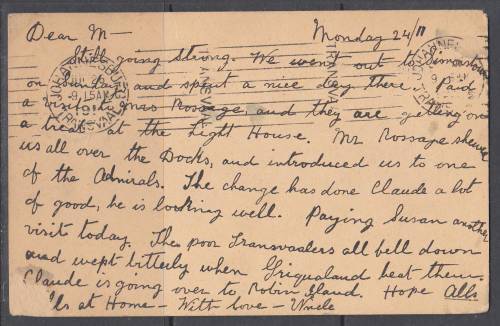 Dear M— Monday 24/11
Still going strong. We went out to Simons
on Sunday and spent a nice day there. Paid
a visit to Mrs Rossage, and they are getting on
a treat at the Light House. Mr Rossage shewed
us all over the Docks, and introduced us to one
of the Admirals. The change has done Claude a lot
of good, he is looking well. Paying Susan another
visit today. The poor Transvaalers all fell down
and wept bitterly when Griqualand beat them.
Claude is going over to Robin Island. Hope All's
at Home— With love— Uncle
JOHANNESBURG
9.15AM
TRANSVAAL